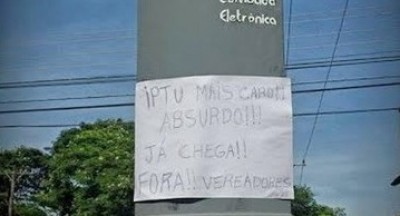 Eletrônica
IPTU MAIS CARO!!
ABSURDO!!!
JÁ CHEGA!!
FORA!!! VEREADORES